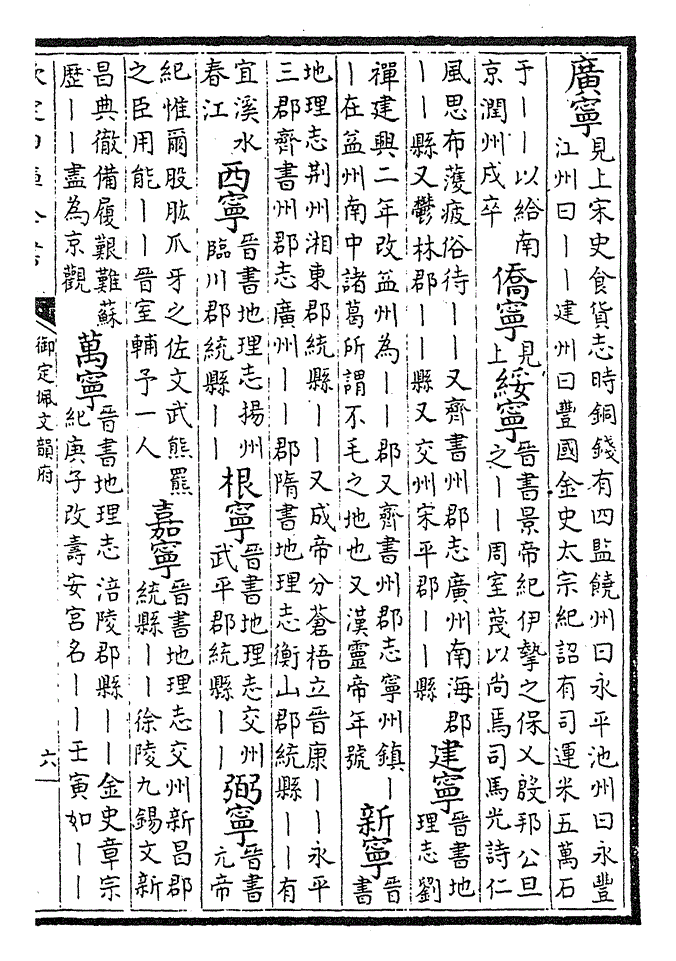 廣寧
見上宋史食貨志時銅錢有四監饒州曰永平池州曰永豐
江州曰——建州曰豐國金史太宗紀詔有司運米五萬石
于——以給南
京潤州戍卒
僑寧
見
上
綏寧
晉書景帝紀伊摯之保乂殷邦公旦
之——周室蔑以尚焉司馬光詩仁
風思布濩疲俗待——又齊書州郡志廣州南海郡
——縣又鬱林郡——縣又交州宋平郡——縣
建寧
晉書地
理志劉
禪建興二年改益州為——郡又齊書州郡志寧州鎮—
—在益州南中諸葛所謂不毛之地也又漢靈帝年號
新寧
晉
書
地理志荆州湘東郡統縣——又成帝分蒼梧立晉康——永平
三郡齊書州郡志廣州——郡隋書地理志衡山郡統縣——有
宜溪水
春江
西寧
晉書地理志揚州
臨川郡統縣——
根寧
晉書地理志交州
武平郡統縣——
弼寧
晉書
元帝
紀惟爾股肱爪牙之佐文武熊羆
之臣用能——晉室輔予一人
嘉寧
晉書地理志交州新昌郡
統縣——徐陵九錫文新
昌典徹備履艱難蘇
歷——盡為京觀
萬寧
晉書地理志涪陵郡縣——金史章宗
紀庚子改壽安宮名——壬寅如——
欽定四庫全書
御定佩文韻府
六